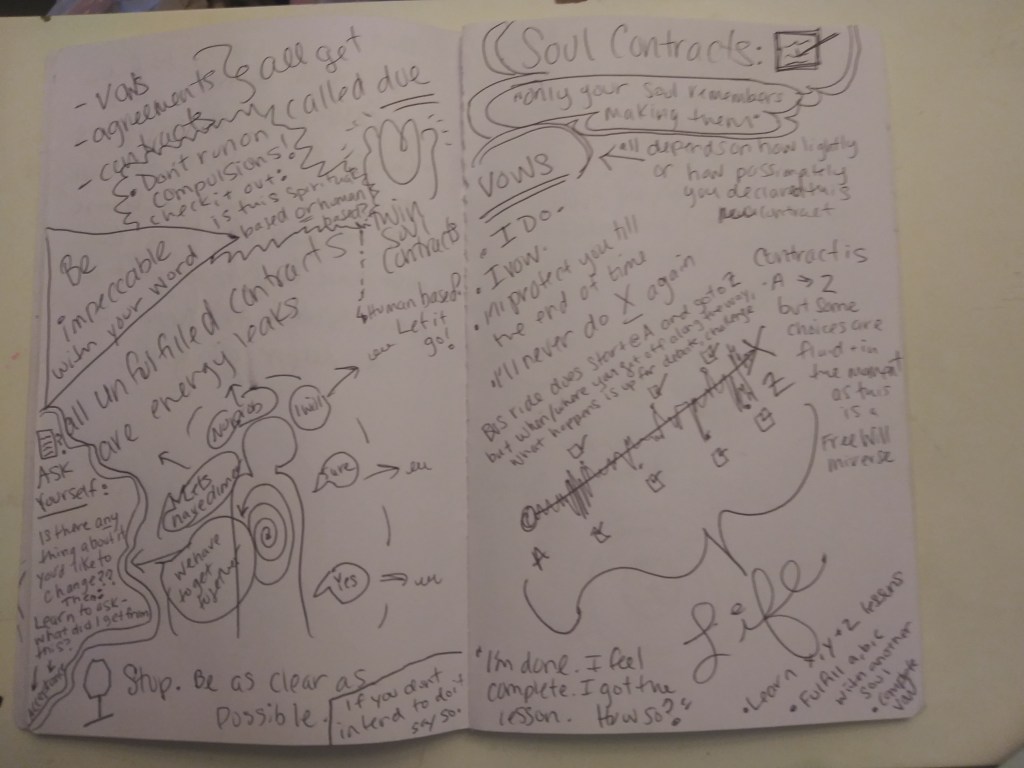 - vows
- agreements & all get
- contracts called due
• Don't run on
compulsions!
check it out:
is this spiritual
based or human
based?
Twin
Soul
Contracts
Human based?
Let it
go!
Be
impeccable
with your word
all unfulfilled contracts
are energy leaks
Ask
Yourself:
Is there any
thing about
you'd like to
change??
Then:
Learn to ask -
what did I get from
this?
I will
Sure
Yes
We have
to get
together
Stop. Be as clear as
possible.
if you don't
intend to do it
say so.
Soul Contracts:
"only your soul remembers
making them"
vows
all depends on how lightly
or how
you declared this
contract
• I DO.
• I vow.
• I'll protect you till
the end of time
• I'll never do X again
Bus ride does start @ A and go to Z
but when/where you get off along the way,
what happens is up for debate, challenge
Contract is
- A → Z
but some
choices are
fluid - in
the moment
as this
is a
Free Will
A
Z
Life
"I'm done. I feel
complete. I got the
lesson. How so?"
• Learn x, y + z lessons
• Fulfill a, b, c
with another
soul